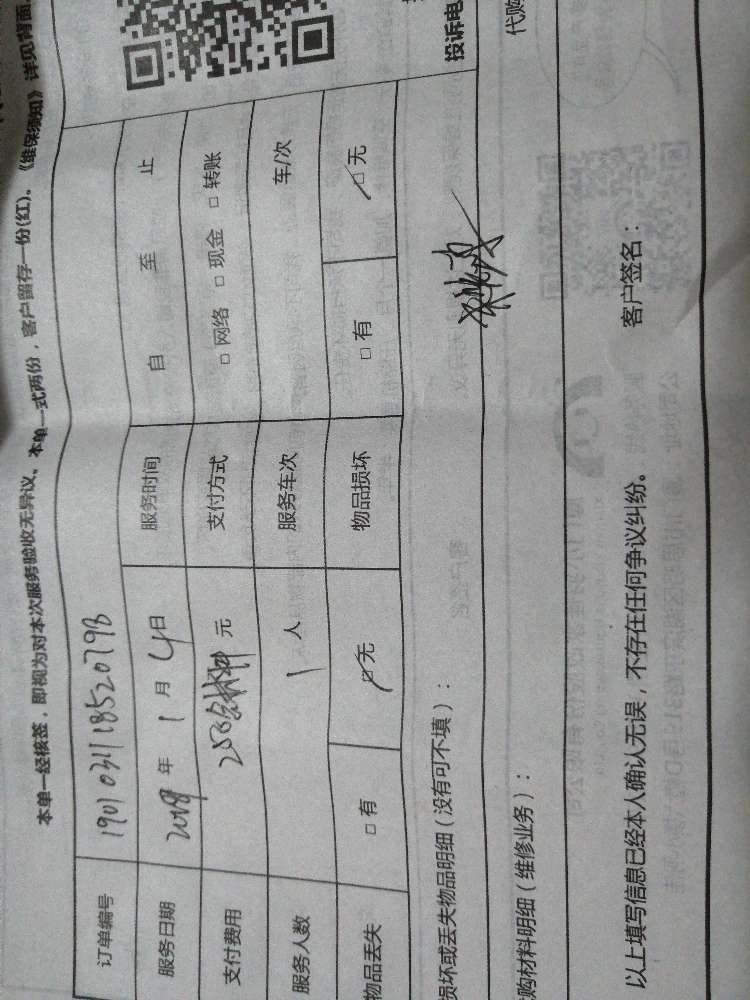 本单一经核签，即视为对本次服务验收无异议、本单一式两份，客户留存一份(红)。《维保须知》详见背面。
订单编号 190103118520793
服务日期 年 1 月 4 日 服务时间 自 至 止
支付费用 元 支付方式 □ 网络 □ 现金 □ 转账
服务人数 1 人 服务车次 车/次
物品丢失 □ 有 □ 无 物品损坏 □ 有 □ 无
损坏或丢失物品明细（没有可不填）：
购材料明细（维修业务）：
以上填写信息已经本人确认无误，不存在任何争议纠纷。 客户签名：
投诉电
代购